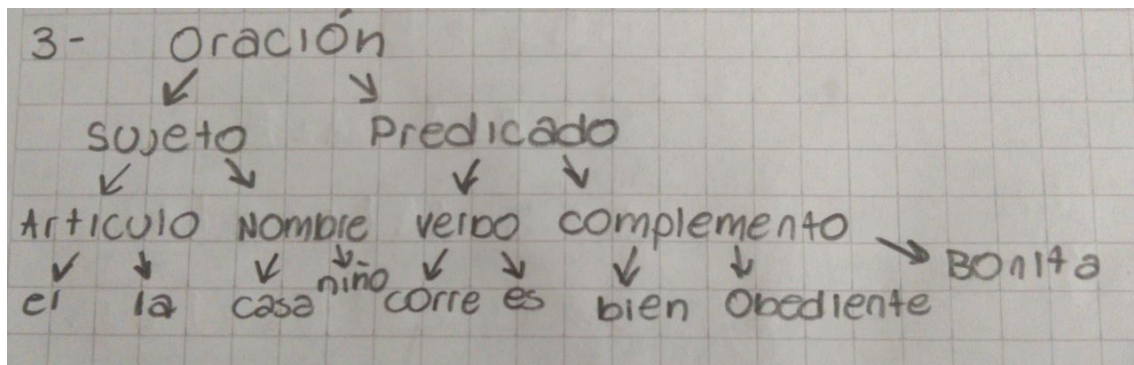 3- Oración
Sujeto Predicado
Artículo Nombre verbo complemento
el la casa niño corre es bien Obediente Bonita